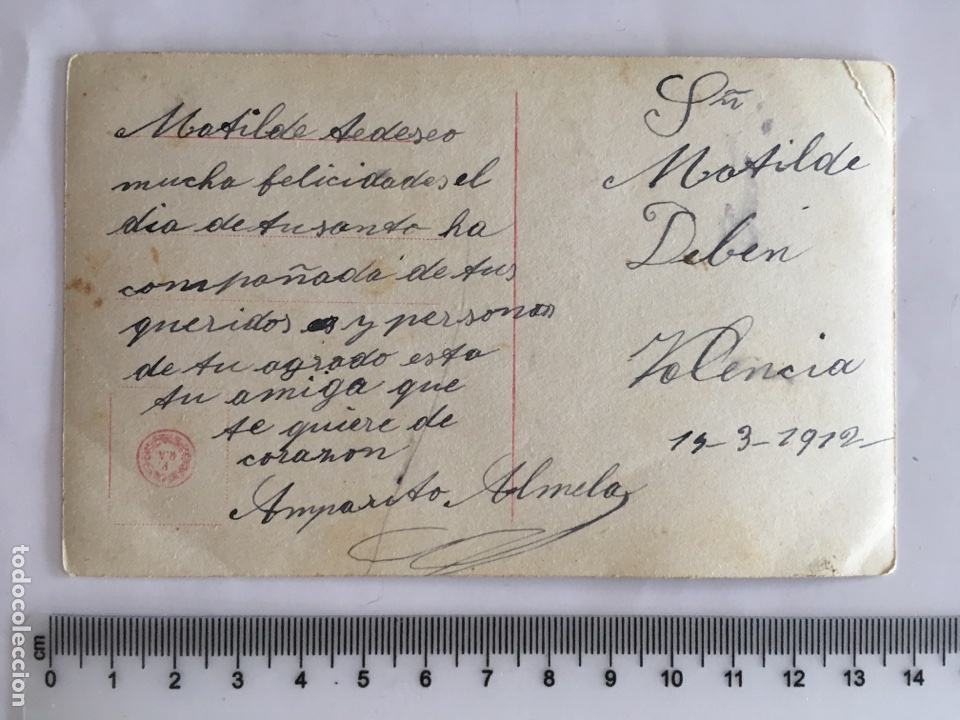 Matilde tedeseo
mucha felicidades el
dia de tu santo ha
compañada de tus
queridos y personas
de tu agrado esta
tu amiga que
te quiere de
corazon
Amparito Almela
Sñ
Matilde
Deben
Valencia
-3-1912
R.A.
cm
0 1 2 3 4 5 6 7 8 9 10 11 12 13 14
todocoleccion